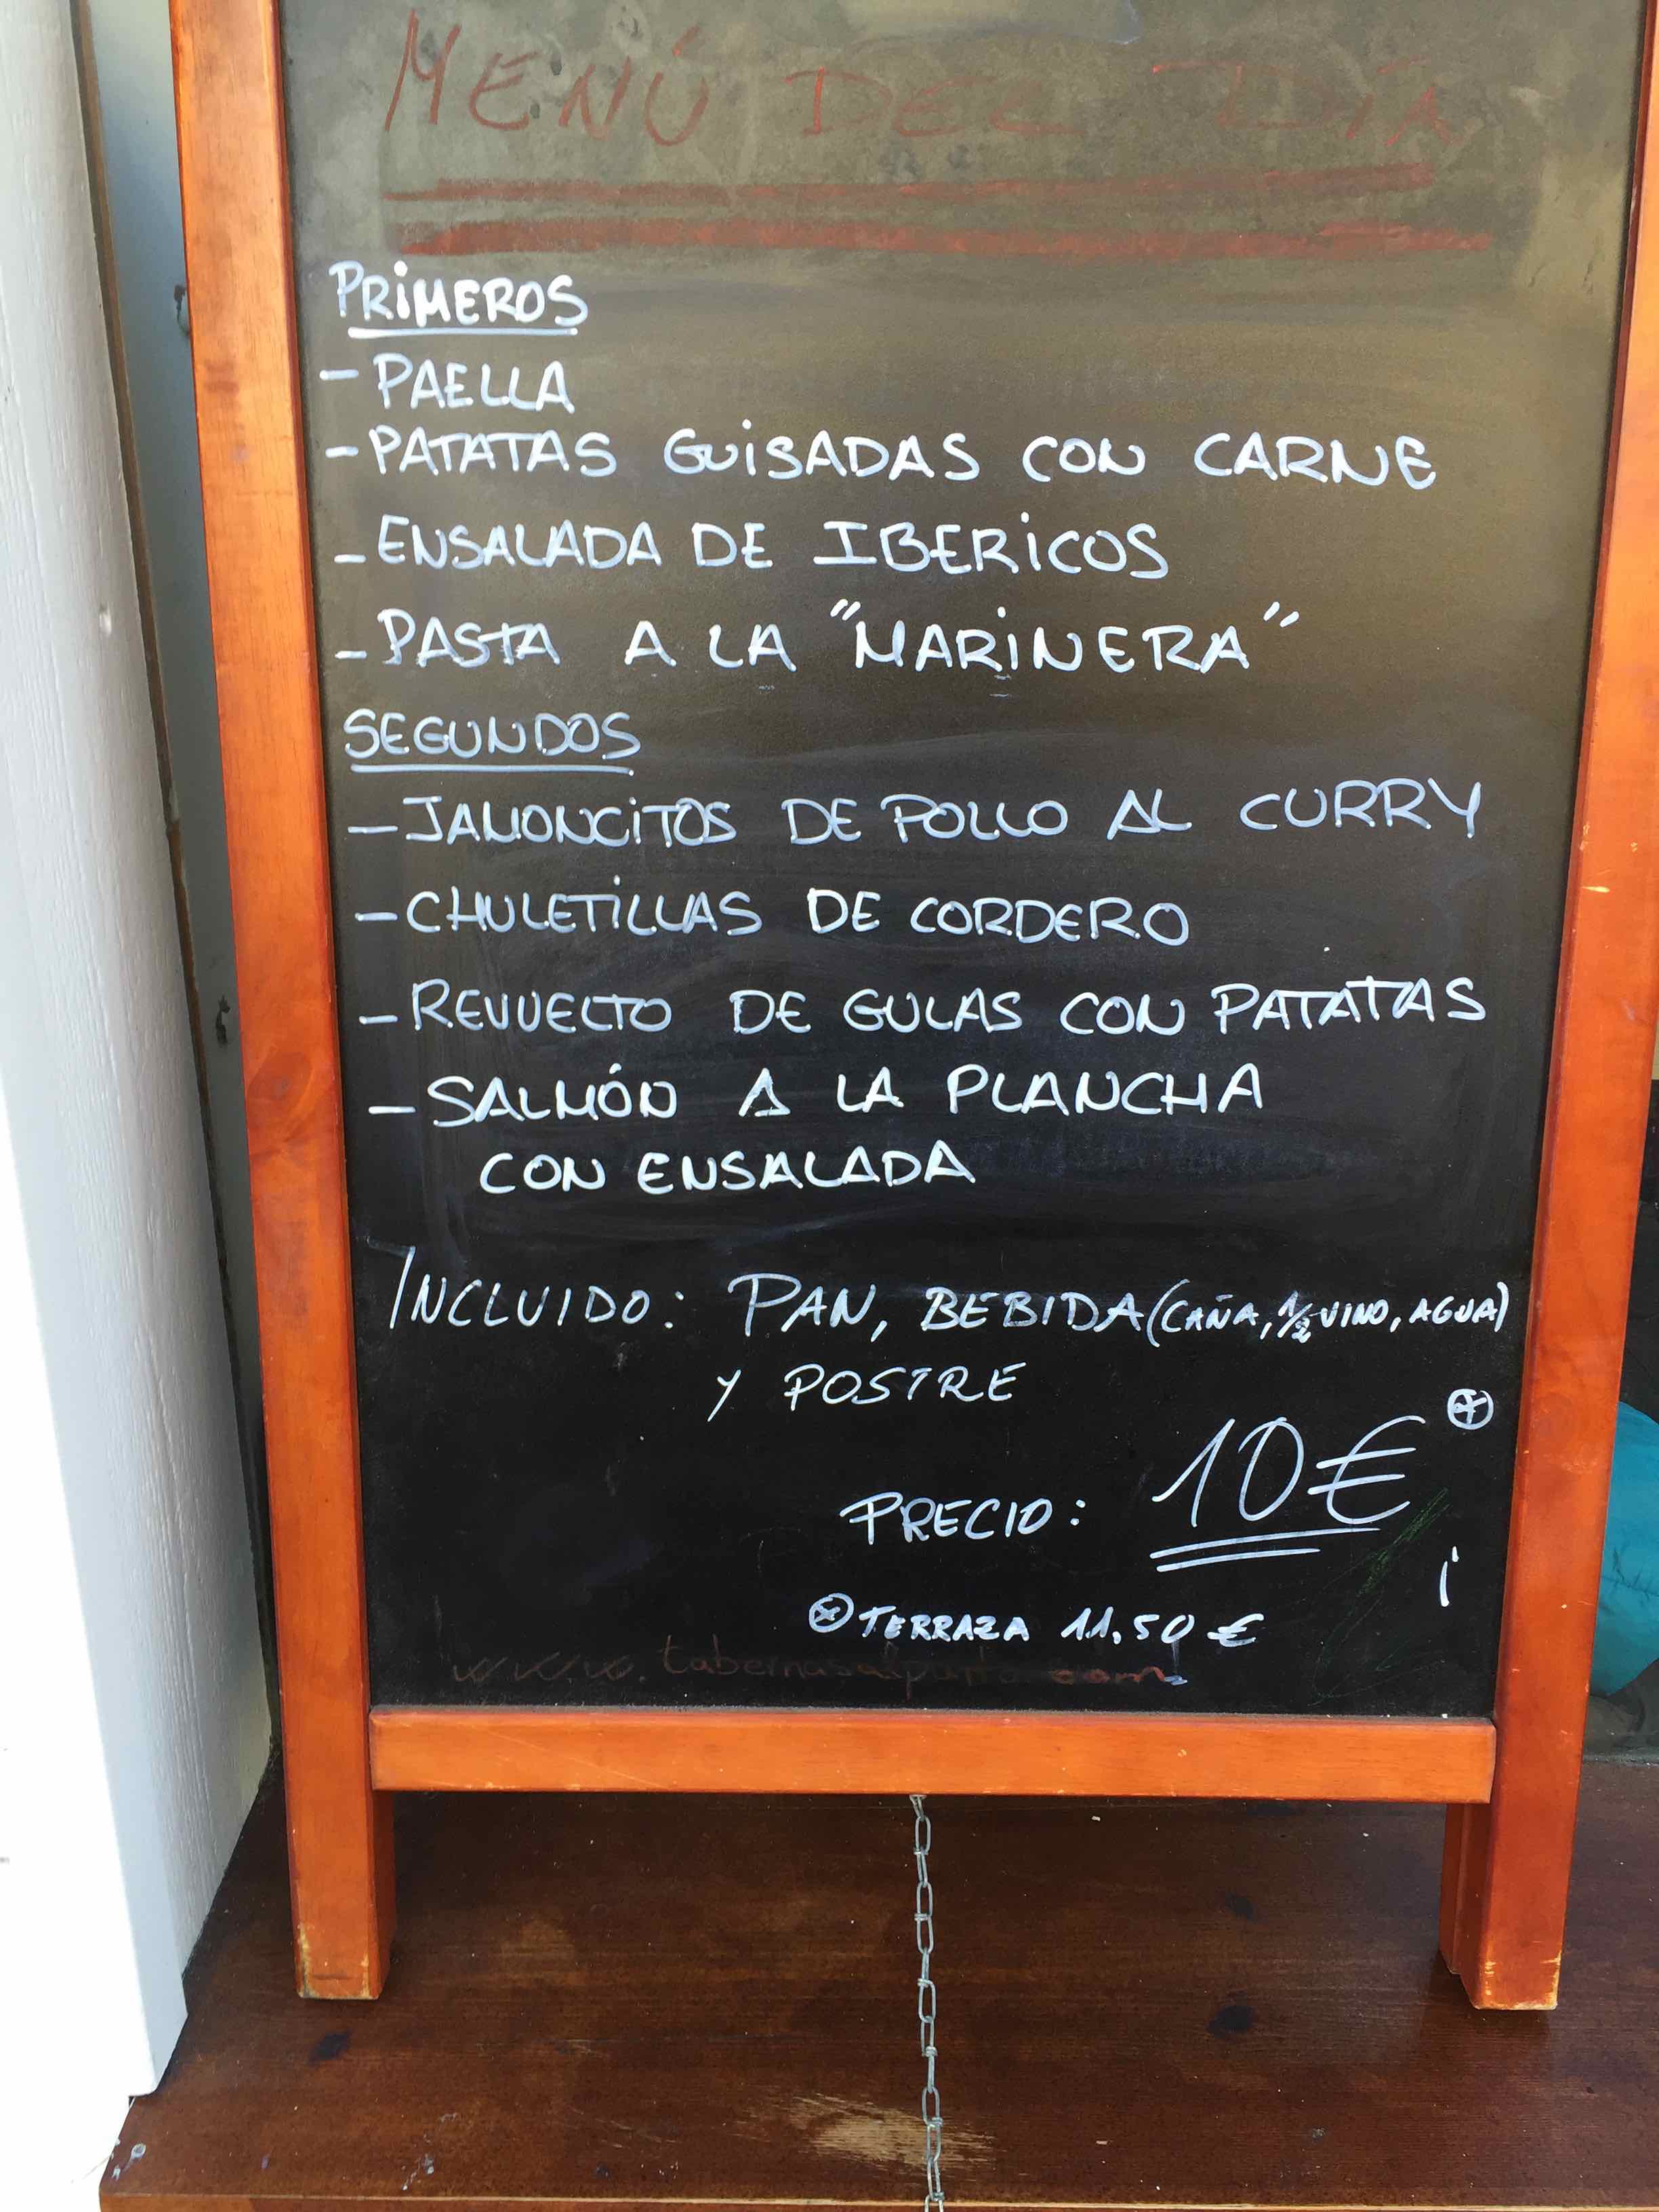 MENÚ DEL DÍA
PRIMEROS
- PAELLA
- PATATAS GUISADAS CON CARNE
- ENSALADA DE IBERICOS
- PASTA A LA "MARINERA"
SEGUNDOS
- JAMONCITOS DE POLLO AL CURRY
- CHULETILLAS DE CORDERO
- REVUELTO DE GULAS CON PATATAS
- SALMÓN A LA PLANCHA
CON ENSALADA
INCLUIDO: PAN, BEBIDA (CAÑA, 1/2 VINO, AGUA)
Y POSTRE
PRECIO: 10€ *
* TERRAZA 11,50 €